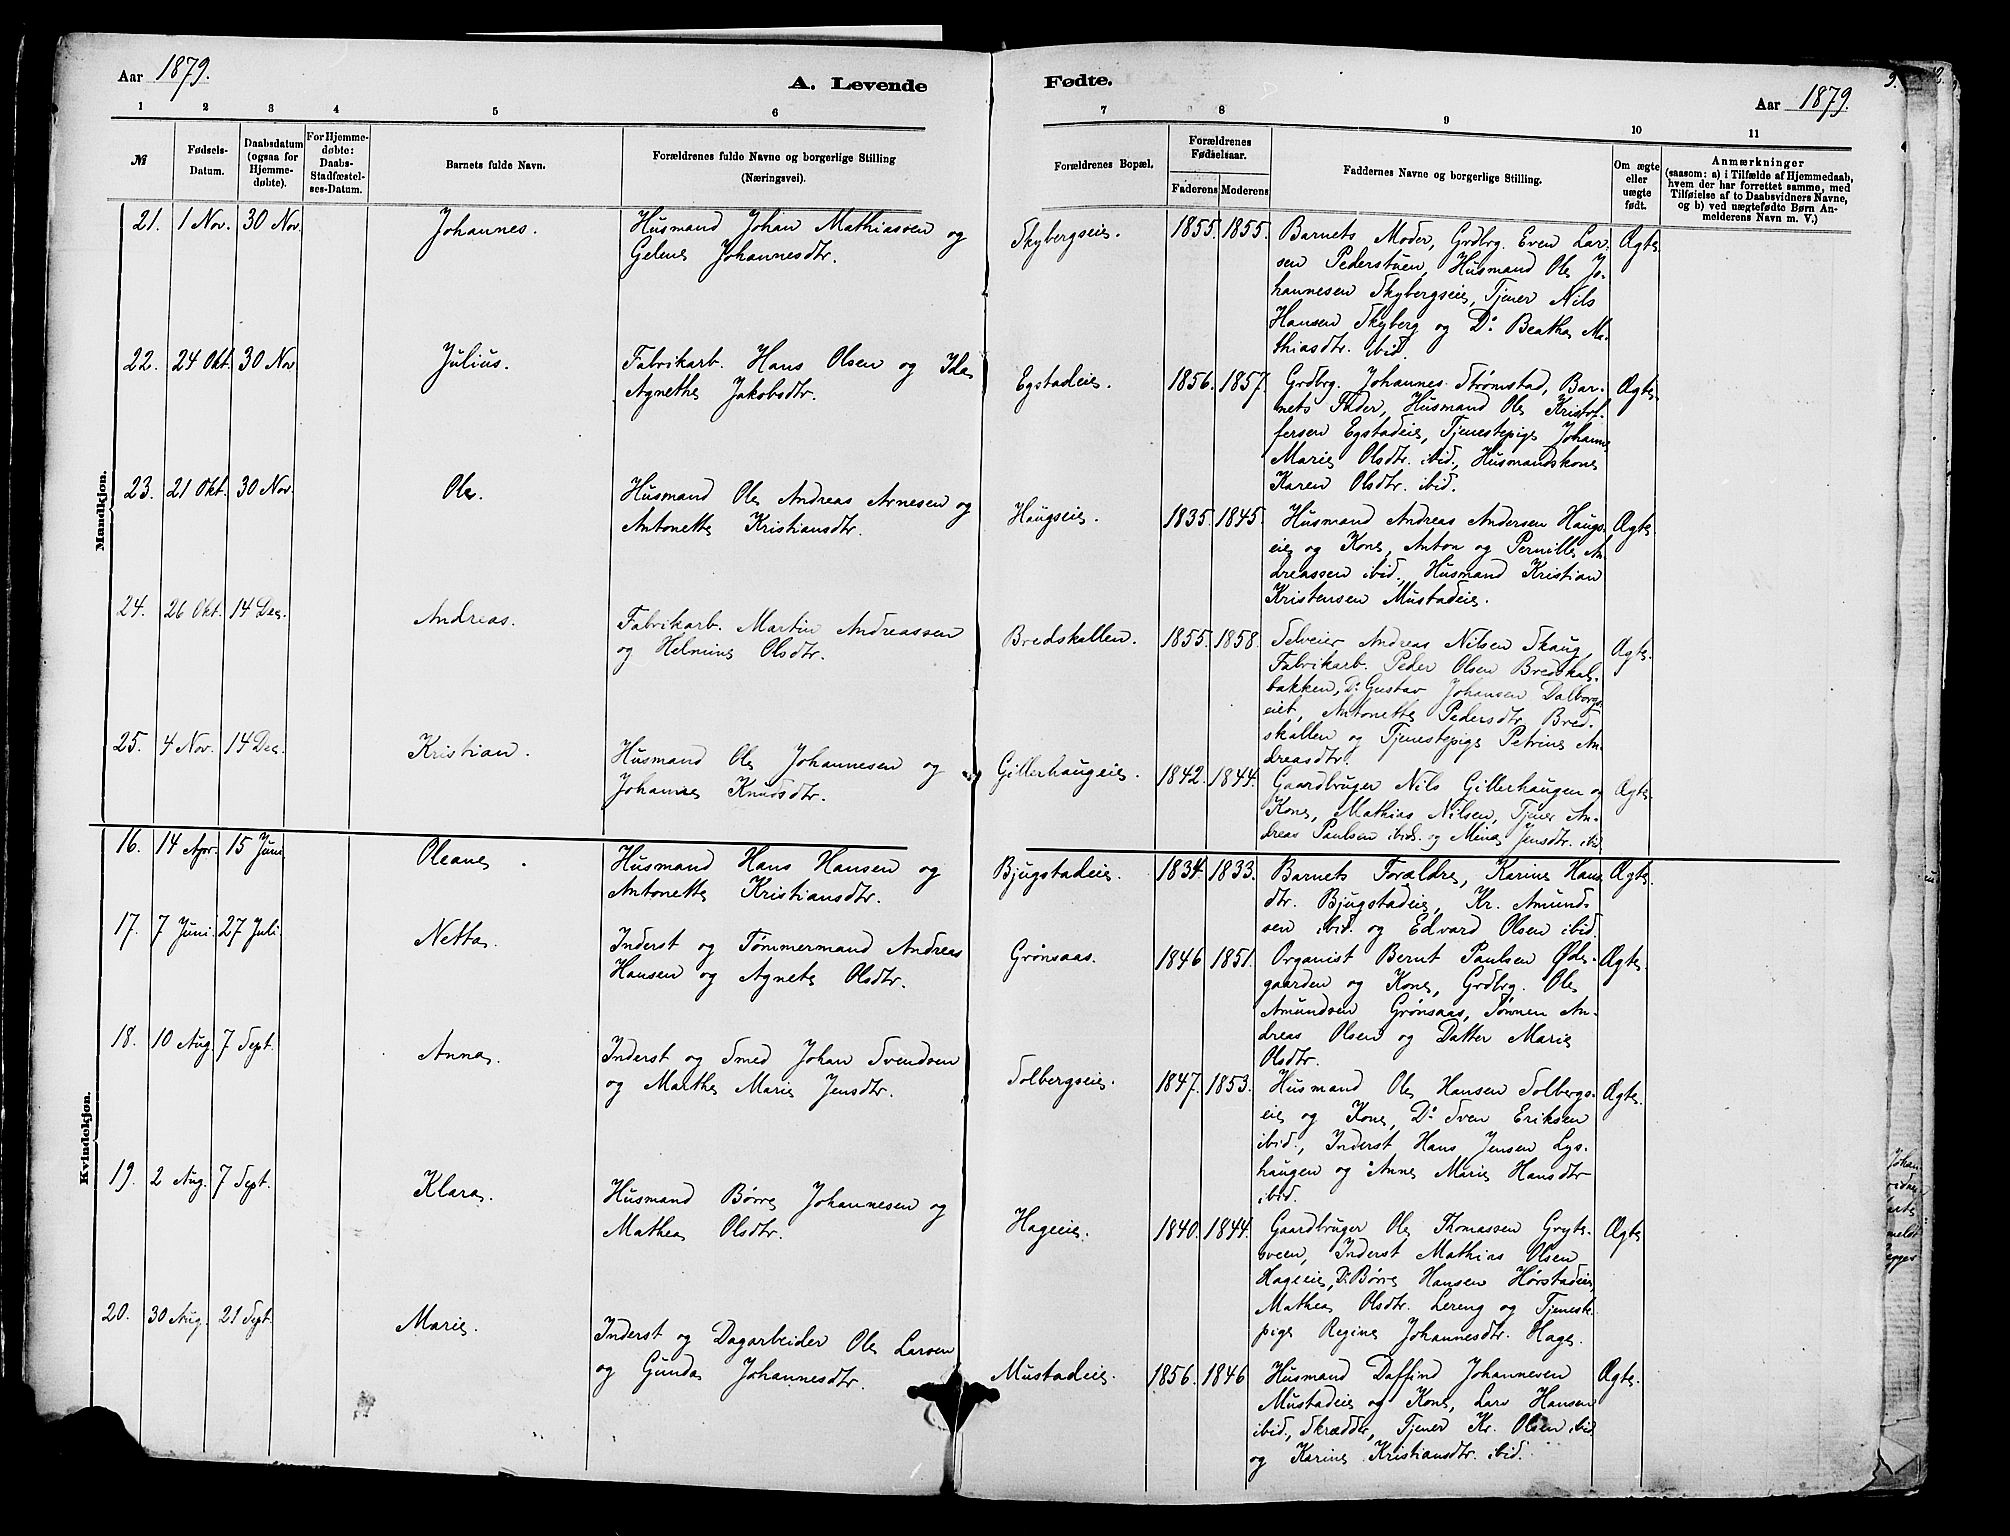 Aar 1879.
A. Levende
Fødte.
3.
2.
Aar 1879.
1 2 3 4 5 6 7 8 9 10 11
№
Fødsels-
Datum.
Daabsdatum
(ogsaa for
Hjemme-
døbte).
For Hjemme-
døbte:
Daabs-
Stadfæstel-
ses-Datum.
Barnets fulde Navn.
Forældrenes fulde Navne og borgerlige Stilling
(Næringsvei).
Forældrenes Bopæl.
Forældrenes
Fødselsaar.
Faderens Moderens
Faddernes Navne og borgerlige Stilling.
Om ægte
eller
uægte
født.
Anmærkninger
(saasom: a) i Tilfælde af Hjemmedaab,
hvem der har forrettet samme, med
Tilføielse af to Daabsvidners Navne,
og b) ved uægtefødte Børn An-
melderens Navn m. V.)
Mandkjøn.
21. 1 Nov. 30 Nov. Johannes.
Husmand Johan Mathiassen og
Gelene Johannesdtr.
Skybergseie. 1855. 1855.
Barnets Moder, Grdbrg. Even Lar-
sen Pederstuen, Husmand Ole Jo-
hannesen Skybergseie, Tjener Nils
Hansen Skyberg og Do Beathe Ma-
thiasdtr. ibid.
Ægte.
22. 24 Okt. 30 Nov Julius.
Fabrikarb. Hans Olsen og Ida
Agnethe Jakobsdtr.
Egstadeie. 1856. 1857.
Grdbrg. Johannes Strømstad, Bar-
nets Fader, Husmand Ole Kristof-
fersen Egstadeie, Tjenestepige Johanne
Marie Olsdtr. ibid., Husmandskone
Karen Olsdtr. ibid.
Ægte.
23. 21 Okt. 30 Nov. Ole.
Husmand Ole Andreas Arnesen og
Antonette Kristiansdtr.
Haugseie. 1835. 1845.
Husmand Andreas Andersen Haugs-
eie og Kone, Anton og Pernille An-
dreassen ibid., Husmand Kristian
Kristensen Mustadeie.
Ægte.
24. 26 Okt. 14 Dec. Andreas.
Fabrikarb. Martin Andreassen
og Helmine Olsdtr.
Bredskallen. 1855. 1858.
Selveier Andreas Nilsen Skaug,
Fabrikarb. Peder Olsen Bredskal-
bakken, Do Gustav Johansen Dalborgs-
eiet, Antonette Pedersdtr. Bred-
skallen og Tjenestepige Petrine An-
dreasdtr.
Ægte.
25. 4 Nov. 14 Dec. Kristian.
Husmand Ole Johannesen og
Johanne Knudsdtr.
Gillerhaugeie. 1842. 1844.
Gaardbruger Nils Gillerhaugen og
Kone, Mathias Nilsen, Tjener An-
dreas Paulsen ibid. og Mina Jensdtr. ibid.
Ægte.
Kvindekjøn.
16. 14 Apr. 15 Juni Oleane.
Husmand Hans Hansen og
Antonette Kristiansdtr.
Bjugstadeie. 1834. 1833.
Barnets Forældre, Karine Hans-
dtr. Bjugstadeie, Kr. Amund-
sen ibid. og Edvard Olsen ibid.
Ægte.
17. 7 Juni. 27 Juli. Netta.
Inderst og Tømmermand Andreas
Hansen og Agnete Olsdtr.
Grønsaas. 1846 1851.
Organist Bernt Paulsen Øde-
gaarden og Kone, Grdbrg. Ole
Amundsen Grønsaas, Sønnen An-
dreas Olsen og Datter Marie
Olsdtr.
Ægte.
18. 10 Aug. 7 Sept. Anna.
Inderst og Smed Johan Svendsen
og Marthe Marie Jensdtr.
Solbergseie. 1847. 1853.
Husmand Ole Hansen Solbergs-
eie og Kone, Do Sven Eriksen
ibid., Inderst Hans Jensen Lys-
haugen og Anne Marie Hansdtr
ibid.
Ægte.
19. 2 Aug. 7 Sept. Klara.
Husmand Børre Johannesen og
Mathea Olsdtr.
Hageeie. 1840. 1844.
Gaardbruger Ole Thomassen Gryte-
sveen, Inderst Mathias Olsen
Hageeie, Do Børre Hansen Hørstadeie,
Mathea Olsdtr. Lereng og Tjeneste-
pige Regine Johannesdtr. Hage.
Ægte
20. 30 Aug. 21 Sept. Marie.
Inderst og Dagarbeider Ole Larsen
og Gunda Johannesdtr.
Mustadeie. 1856. 1846
Husmand Daffind Johannesen
Mustadeie og Kone, Lars Hansen
ibid., Skrædder, Tjener Kr. Olsen ibid
og Karine Kristiansdtr. ibid.
Ægte.